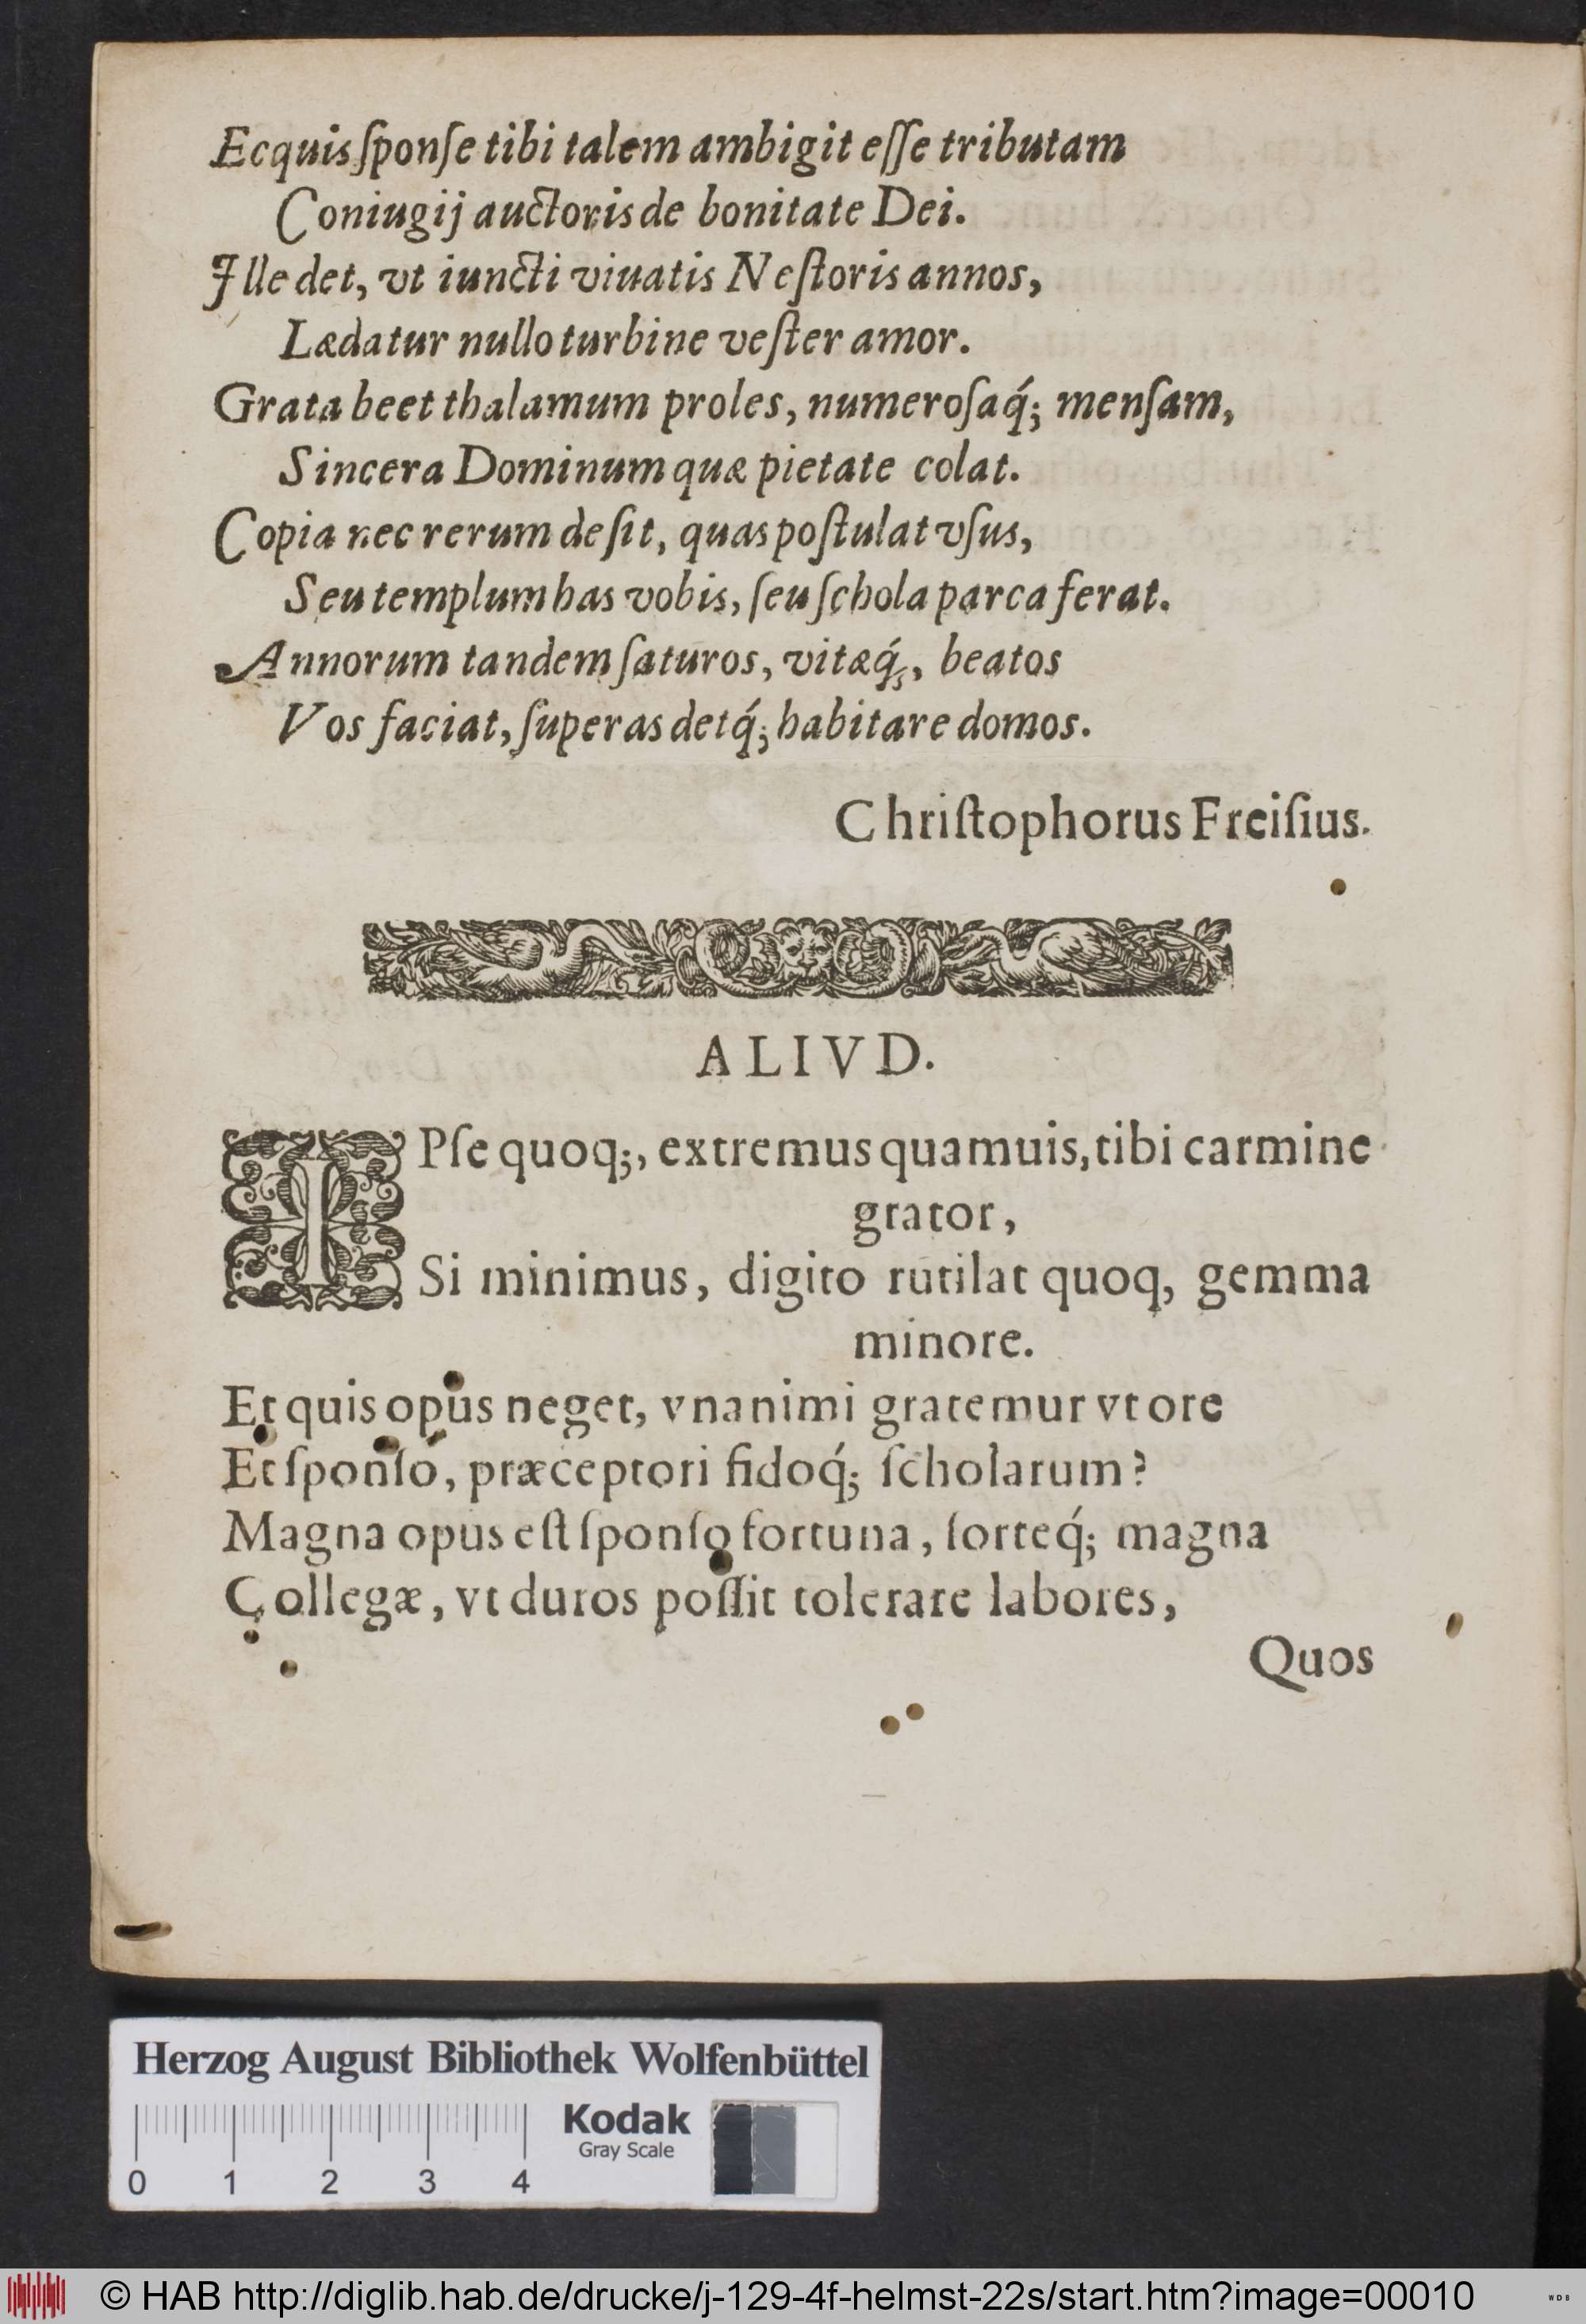 Ecquis ſponſe tibi talem ambigit eſſe tributam
Coniugij auctoris de bonitate Dei.
Ille det, vt iuncti viuatis Neſtoris annos,
Lædatur nullo turbine veſter amor.
Grata beet thalamum proles, numeroſaq́; menſam,
Sincera Dominum quæ pietate colat.
Copia nec rerum deſit, quas poſtulat vſus,
Seu templum has vobis, ſeu ſchola parca ferat.
Annorum tandem ſaturos, vitæq́;, beatos
Vos faciat, ſuperas detq́; habitare domos.
Chriſtophorus Freiſius.
ALIVD.
IPſe quoq;, extremus quamuis, tibi carmine
grator,
Si minimus, digito rutilat quoq, gemma
minore.
Et quis opus neget, vnanimi gratemur vt ore
Et ſponſo, præceptori fidoq́; ſcholarum?
Magna opus eſt ſponſo fortuna, ſorteq́; magna
Collegæ, vt duros poſſit tolerare labores,
Quos
Herzog August Bibliothek Wolfenbüttel
Kodak
Gray Scale
0 1 2 3 4
© HAB http://diglib.hab.de/drucke/j-129-4f-helmst-22s/start.htm?image=00010
WDB